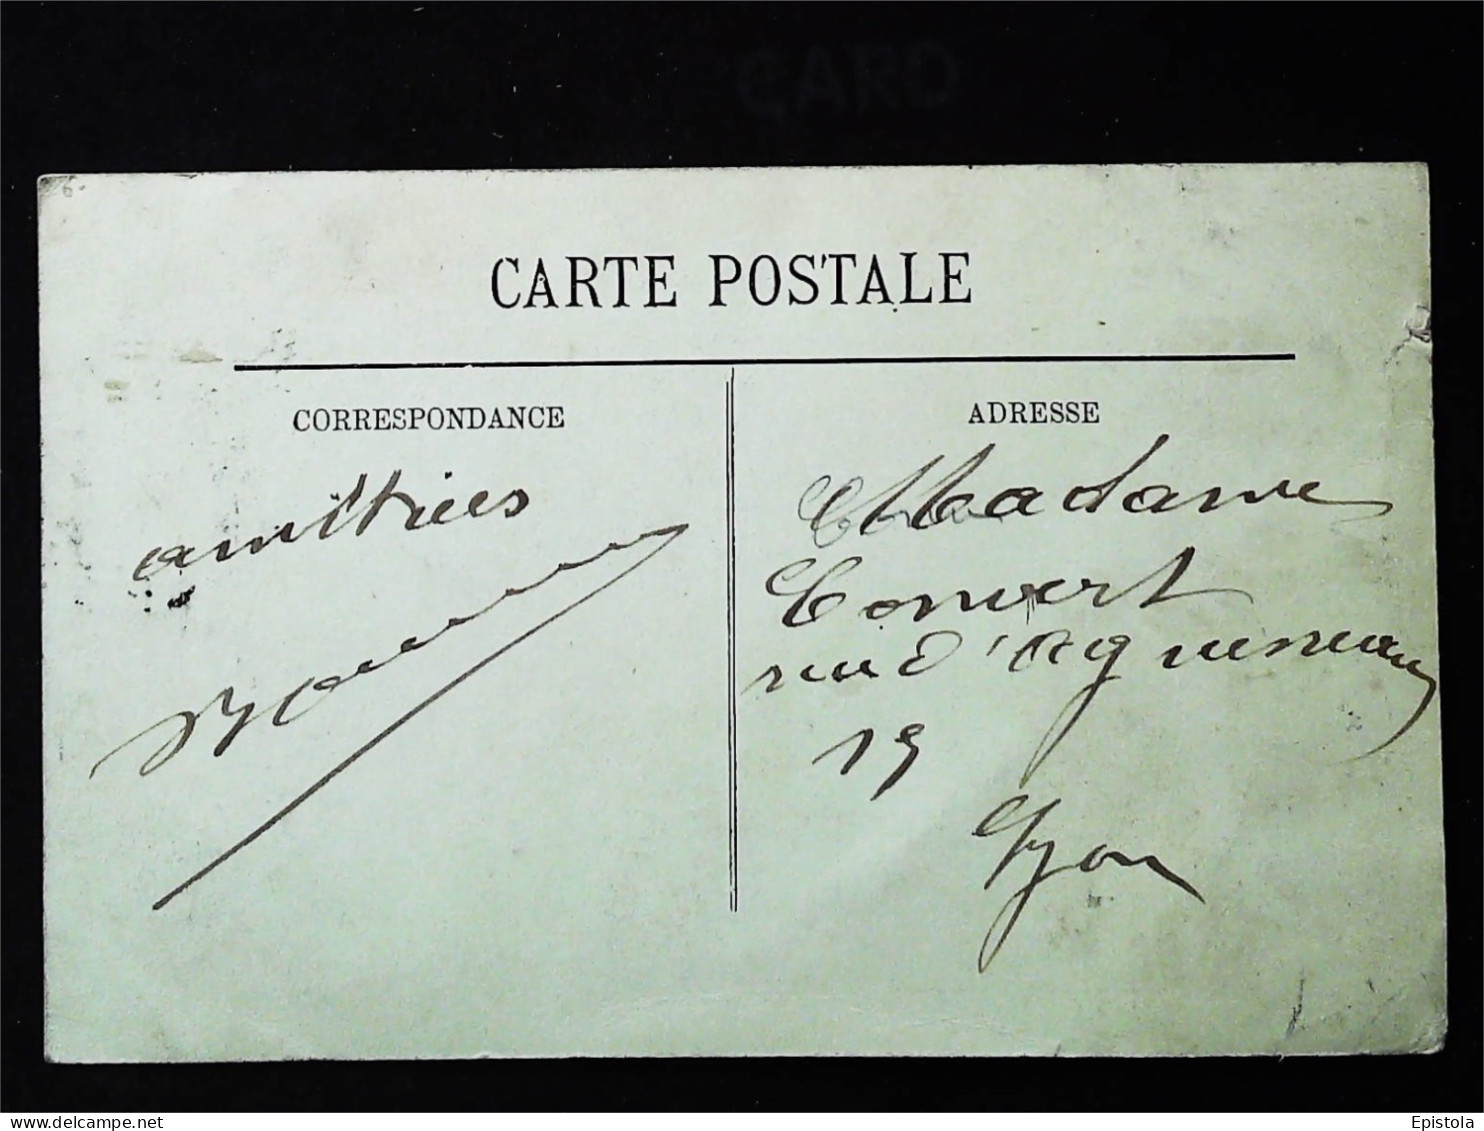 CARD
CARTE POSTALE
CORRESPONDANCE
amitiées
ADRESSE
Madame
Convert
rue d'Aguesseau
19
Lyon
delcampe.net
Epistola